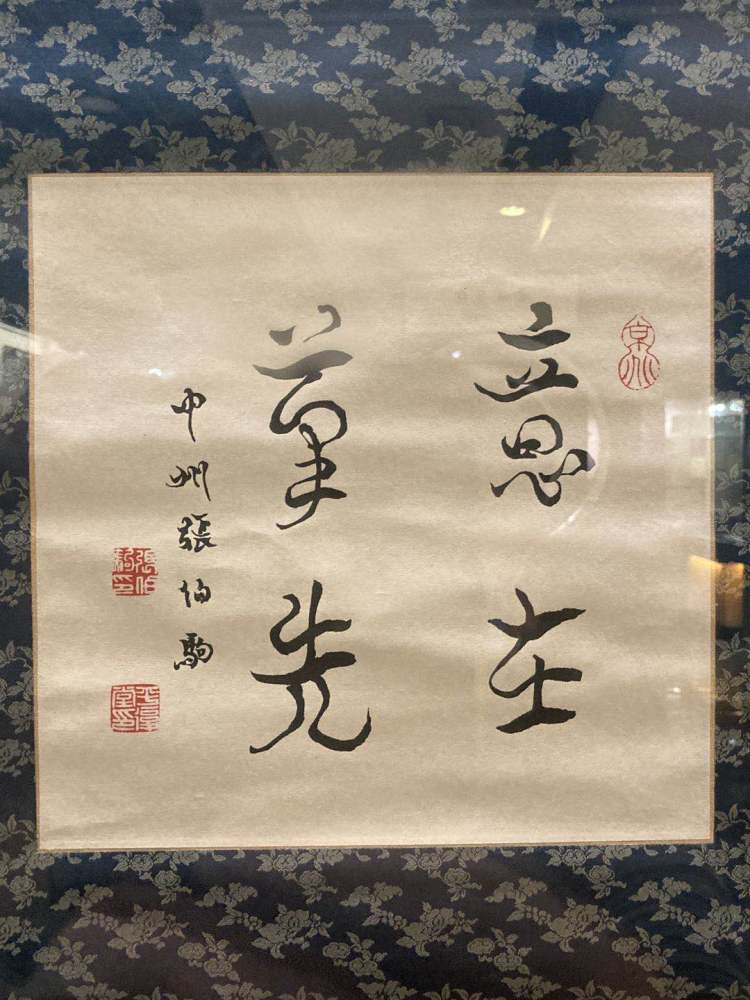 京兆
意在
筆先
中州張伯駒
張伯駒印
平復堂印